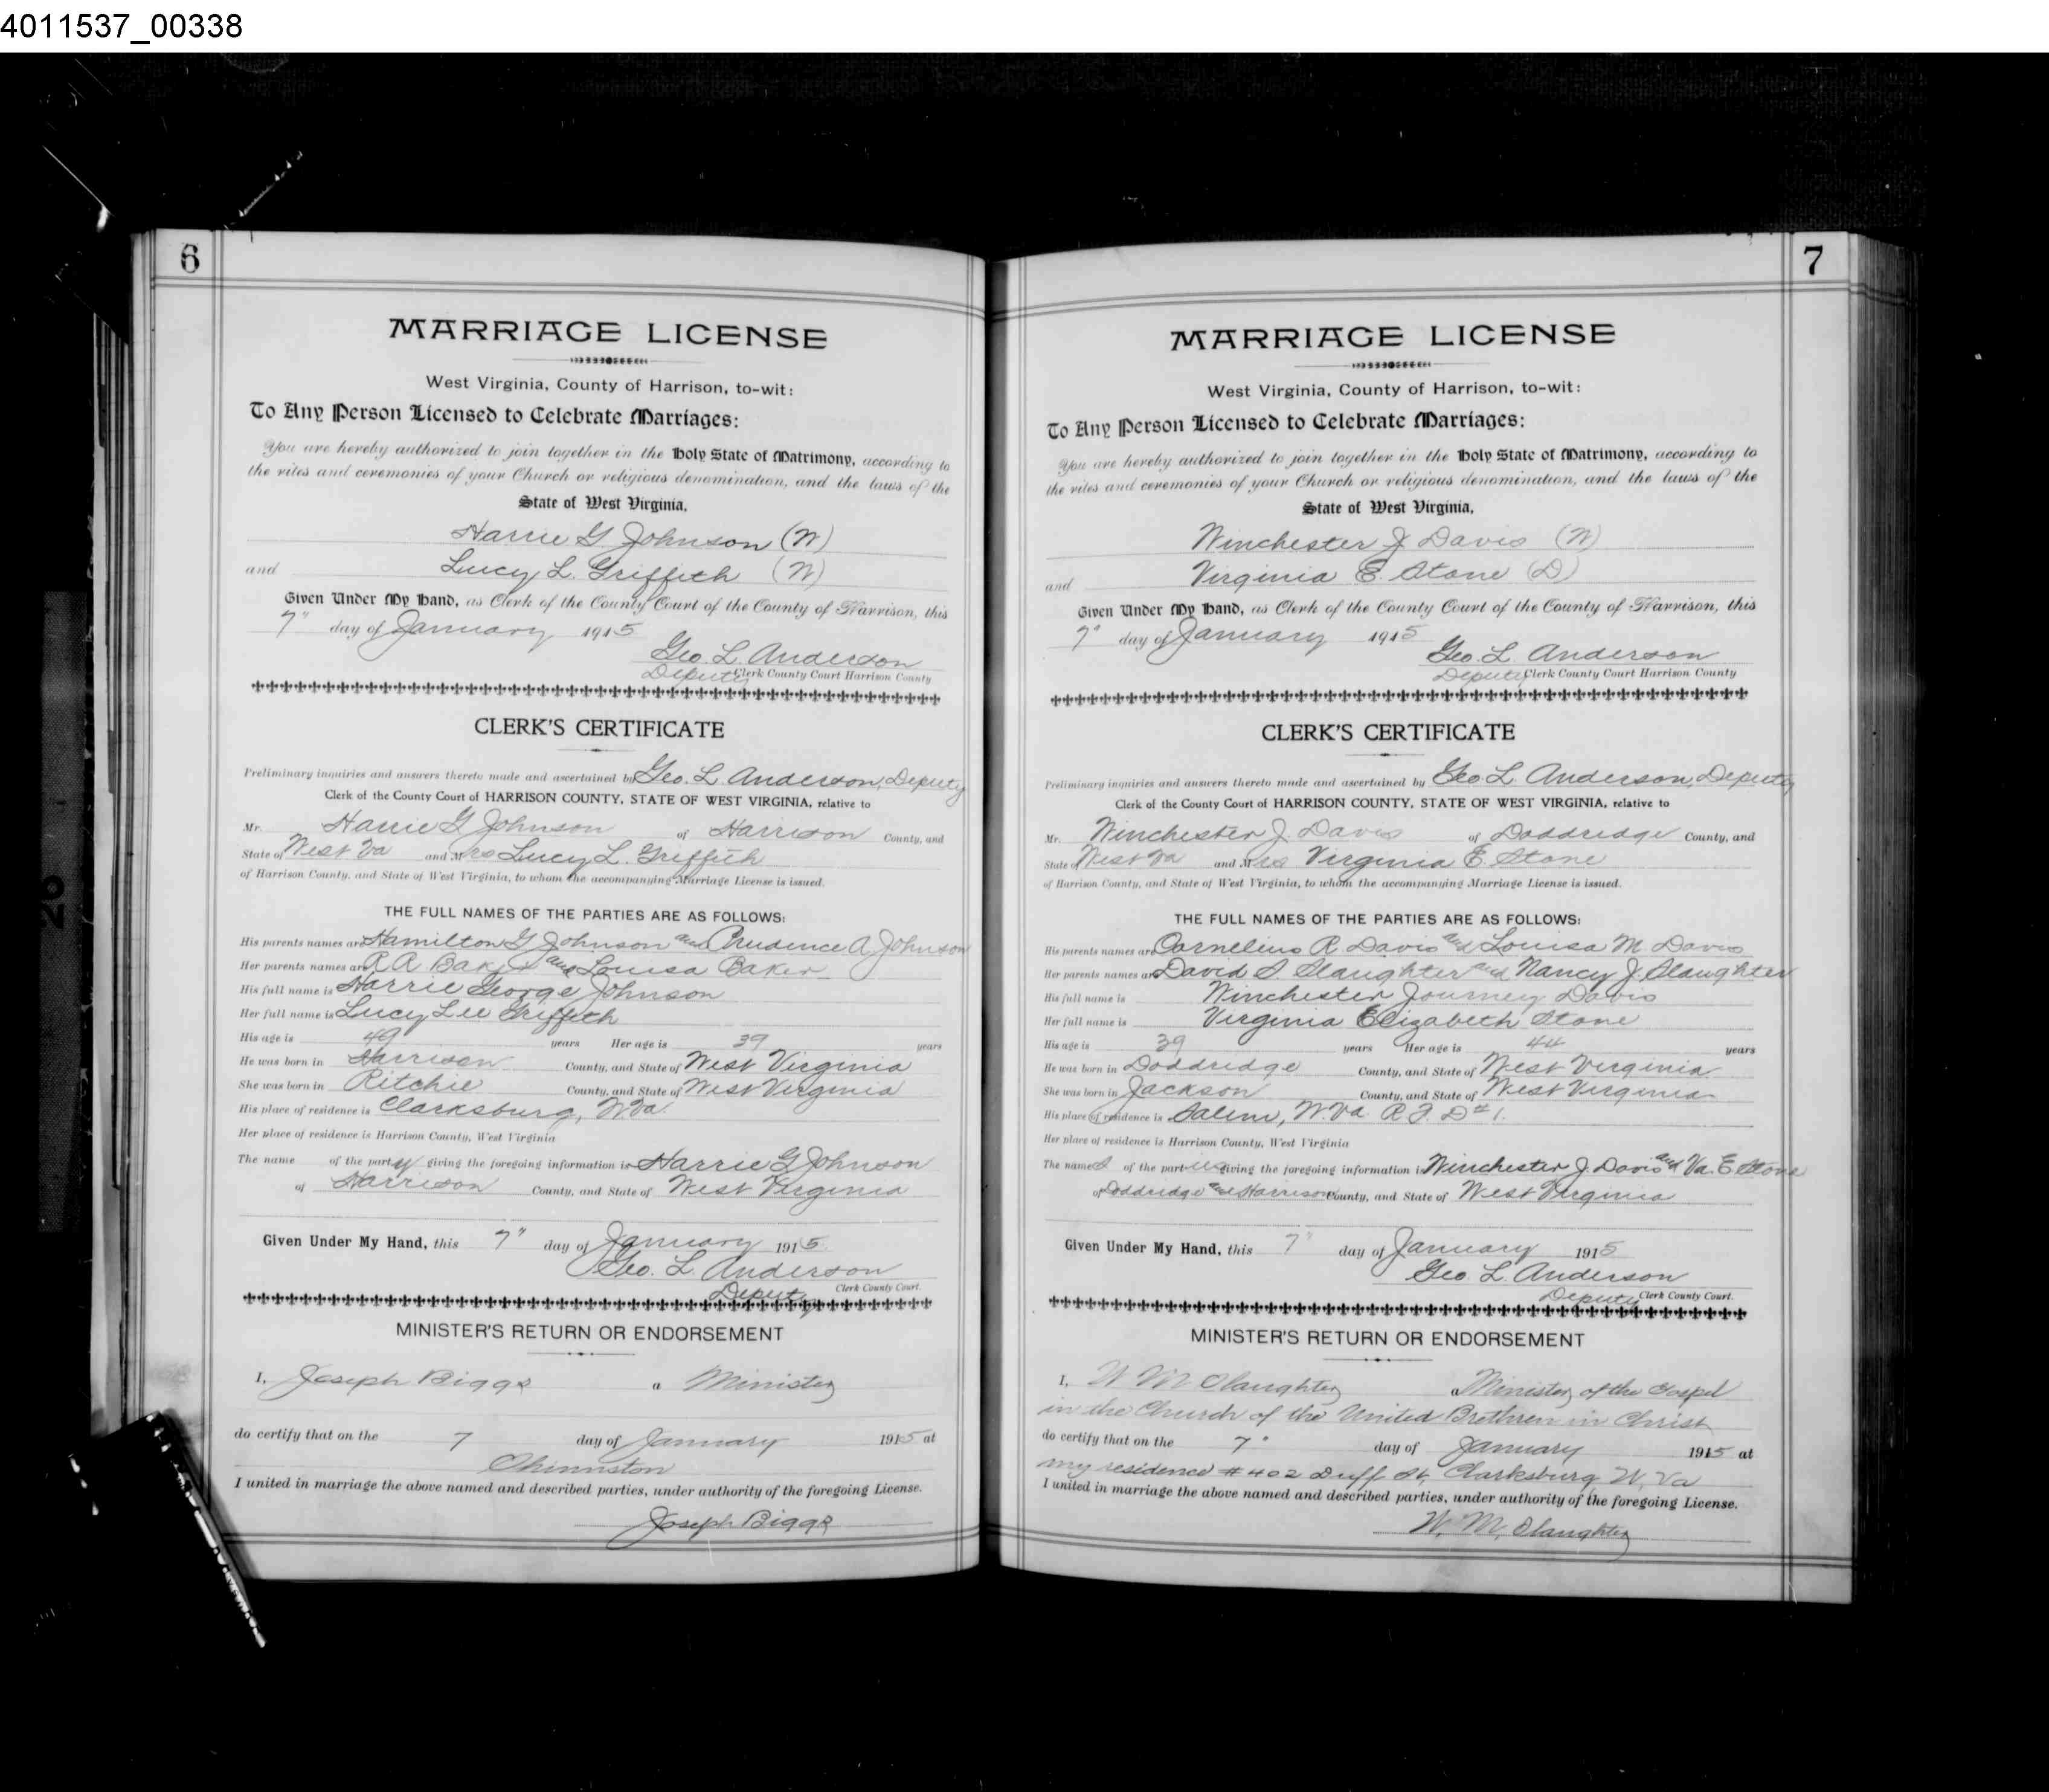 4011537_00338
6
MARRIAGE LICENSE
West Virginia, County of Harrison, to-wit:
To Any Person Licensed to Celebrate Marriages:
You are hereby authorized to join together in the Holy State of Matrimony, according to
the rites and ceremonies of your Church or religious denomination, and the laws of the
State of West Virginia,
Harrie G. Johnson (W)
and Lucy L. Griffith (W)
Given Under My Hand, as Clerk of the County Court of the County of Harrison, this
7" day of January 1915
Geo. L. Anderson
Deputy Clerk County Court Harrison County
CLERK'S CERTIFICATE
Preliminary inquiries and answers thereto made and ascertained by Geo. L. Anderson, Deputy
Clerk of the County Court of HARRISON COUNTY, STATE OF WEST VIRGINIA, relative to
Mr. Harrie G Johnson of Harrison County, and
State of West Va and Mrs Lucy L. Griffith
of Harrison County, and State of West Virginia, to whom the accompanying Marriage License is issued.
THE FULL NAMES OF THE PARTIES ARE AS FOLLOWS:
His parents names are Hamilton G Johnson and Prudence A Johnson
Her parents names are R A Baker and Louisa Baker
His full name is Harrie George Johnson
Her full name is Lucy Lee Griffith
His age is 49 years Her age is 39 years
He was born in Harrison County, and State of West Virginia
She was born in Ritchie County, and State of West Virginia
His place of residence is Clarksburg, W.Va.
Her place of residence is Harrison County, West Virginia
The name of the party giving the foregoing information is Harrie G Johnson
of Harrison County, and State of West Virginia
Given Under My Hand, this 7" day of January 1915
Geo. L. Anderson
Deputy Clerk County Court.
MINISTER'S RETURN OR ENDORSEMENT
I, Joseph Biggs a Minister
do certify that on the 7 day of January 1915 at
Shinnston
I united in marriage the above named and described parties, under authority of the foregoing License.
Joseph Biggs
7
MARRIAGE LICENSE
West Virginia, County of Harrison, to-wit:
To Any Person Licensed to Celebrate Marriages:
You are hereby authorized to join together in the Holy State of Matrimony, according to
the rites and ceremonies of your Church or religious denomination, and the laws of the
State of West Virginia,
Winchester J Davis (W)
and Virginia E. Stone (D)
Given Under My Hand, as Clerk of the County Court of the County of Harrison, this
7" day of January 1915
Geo. L. Anderson
Deputy Clerk County Court Harrison County
CLERK'S CERTIFICATE
Preliminary inquiries and answers thereto made and ascertained by Geo. L. Anderson, Deputy
Clerk of the County Court of HARRISON COUNTY, STATE OF WEST VIRGINIA, relative to
Mr. Winchester J. Davis of Doddridge County, and
State of West Va and Mrs Virginia E. Stone
of Harrison County, and State of West Virginia, to whom the accompanying Marriage License is issued.
THE FULL NAMES OF THE PARTIES ARE AS FOLLOWS:
His parents names are Cornelius R. Davis and Louisa M. Davis
Her parents names are David S. Slaughter and Nancy J. Slaughter
His full name is Winchester Journey Davis
Her full name is Virginia Elizabeth Stone
His age is 39 years Her age is 44 years
He was born in Doddridge County, and State of West Virginia
She was born in Jackson County, and State of West Virginia
His place of residence is Salem, W.Va. R.F.D #1.
Her place of residence is Harrison County, West Virginia
The names of the parties giving the foregoing information is Winchester J. Davis and Va. E Stone
of Doddridge and Harrison County, and State of West Virginia
Given Under My Hand, this 7" day of January 1915
Geo L. Anderson
Deputy Clerk County Court.
MINISTER'S RETURN OR ENDORSEMENT
I, W M Slaughter a Minister of the Gospel
in the Church of the United Brethren in Christ
do certify that on the 7" day of January 1915 at
my residence #402 Duff St, Clarksburg, W. Va
I united in marriage the above named and described parties, under authority of the foregoing License.
W. M. Slaughter